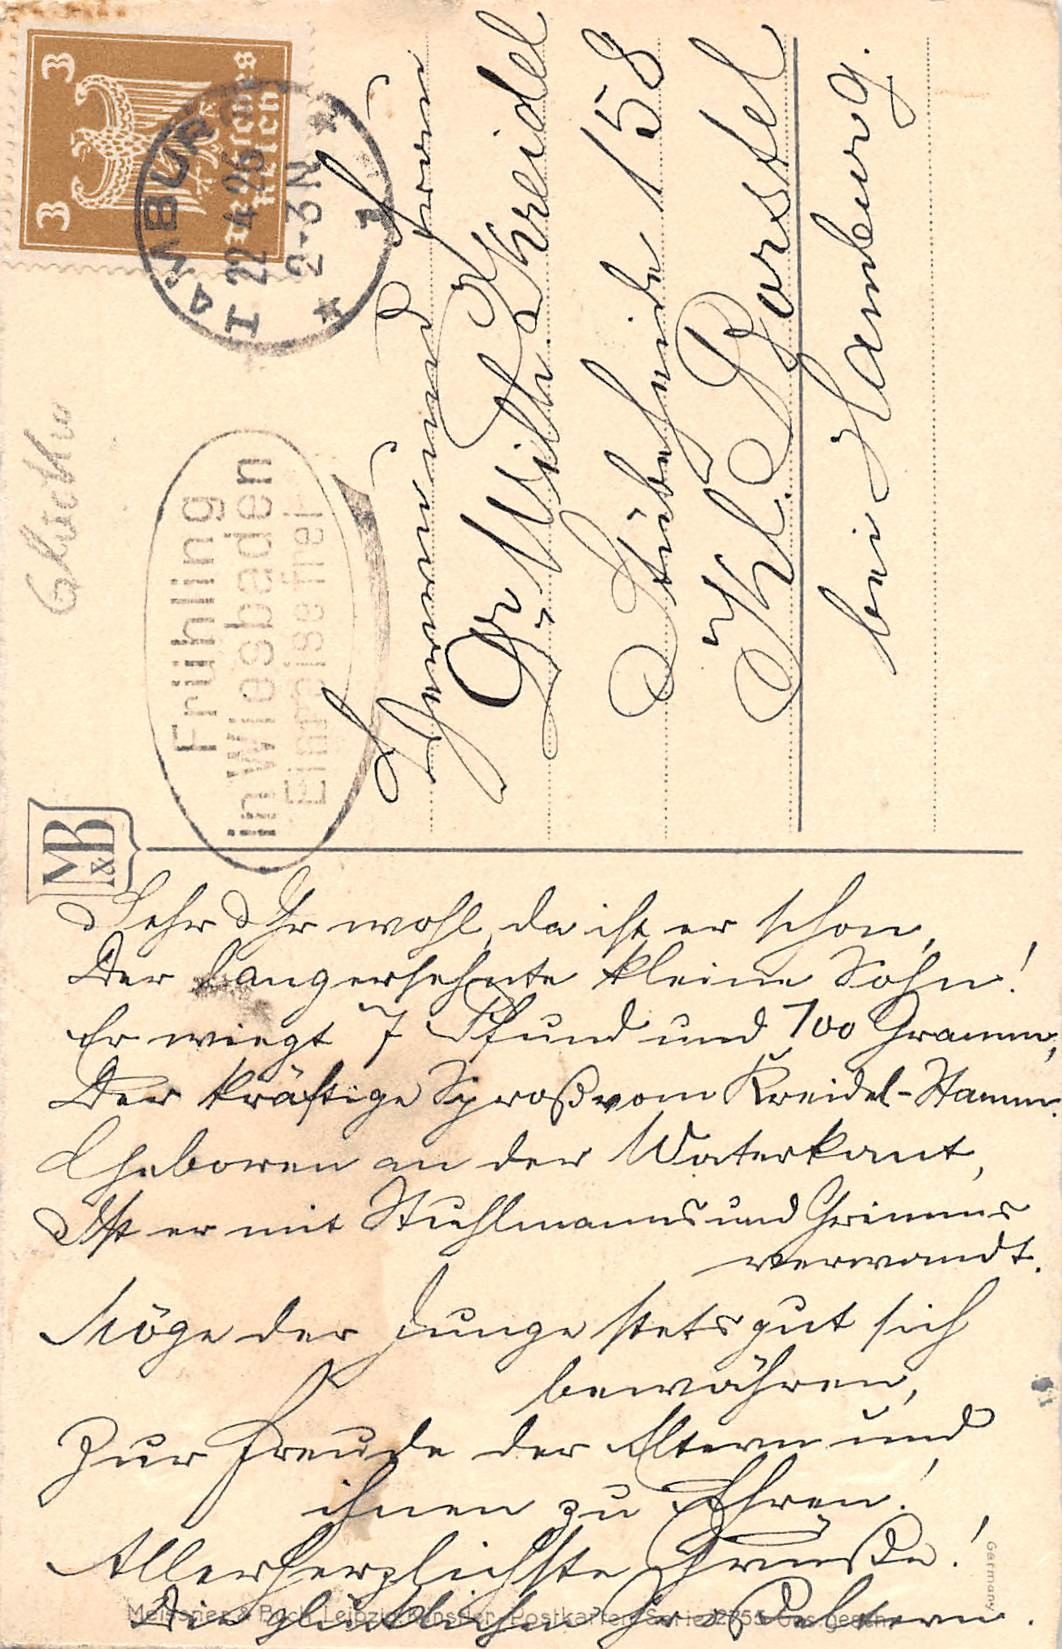 3
3
Deutsches
Reich
HAMBURG
22.4.25
2-3N
* 1 *
Frühling
in Wiesbaden
Herrn und Frau
Wilh. Kreidel
Stübeheide 158
Kl. Borstel
bei Hamburg.
M&B
Seht Ihr wohl, da ist er schon,
Der langersehnte kleine Sohn!
Er wiegt 7 Pfund und 700 Gramm,
Der kräftige Sproß vom Kreidel-Stamm.
Geboren an der Waterkant,
Ist er mit Stuhlmanns und Grimms
verwandt.
Möge der Junge stets gut sich
bewähren,
Zur Freude der Eltern und
ihnen zu Ehren!
Allerherzlichste Grüße!
Die glücklichen
Meissner & Buch, Leipzig Künstler-Postkarten Serie 2755 Ges. gesch.
Germany